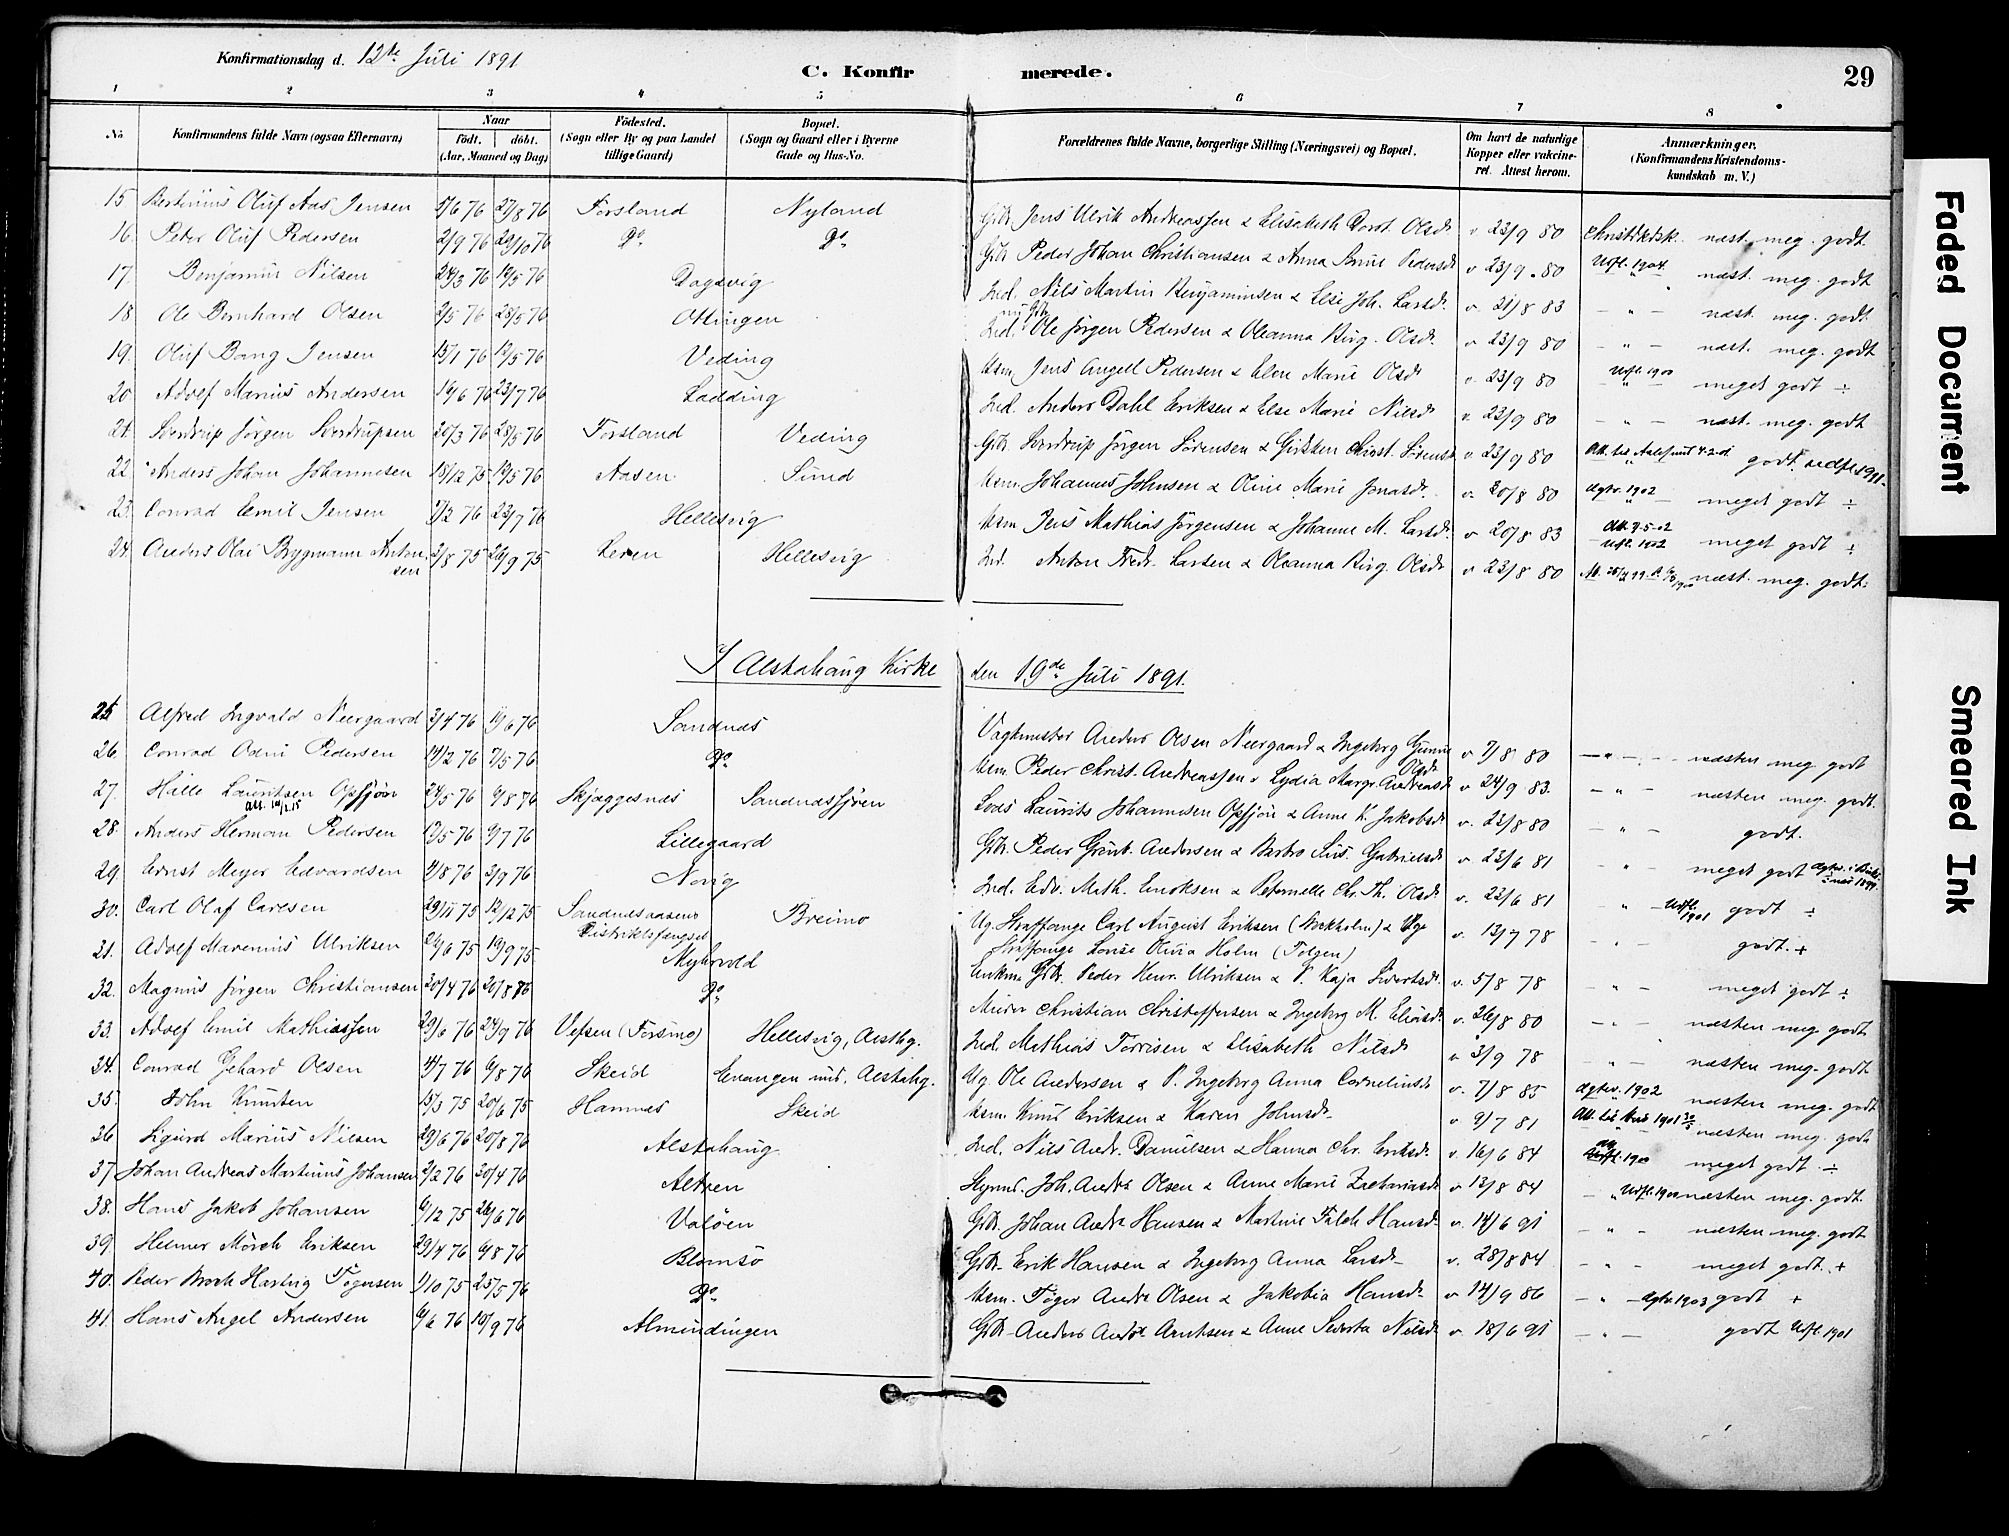 Konfirmationsdag d. 12te Juli 1891
C. Konfirmerede.
29
1 2 3 4 5 6 7 8
No
Konfirmandens fulde Navn (ogsaa Efternavn)
Naar
født. døbt.
(Aar, Maaned og Dag)
Fødested.
(Sogn eller By og paa Landet tillige Gaard)
Bopæl.
(Sogn og Gaard eller i Byerne Gade og Hus-No.
Forældrenes fulde Navne, borgerlige Stilling (Næringsvei) og Bopæl.
Om havt de naturlige Kopper eller vakcineret. Attest herom.
Anmærkninger.
(Konfirmandens Kristendomskundskab m. V.)
15 Bertinius Oluf Aas Jensen 27/8 76 Forsland Nyland Gbr. Jens Ulrik Andreassen & Elisabeth Dorot. Olsdr v 23/9 80 Christdktsk. næst. meg. godt
16. Peter Oluf Pedersen 2/9 76 29/10 76 do. do. Gbr. Peder Johan Christiansen & Anna Pedersdr v 23/9 80 Udfl. 1904. næst. meg. godt
17. Benjamin Nilsen 24/3 76 Dagsvig Ind. Nils Martin Benjaminsen & Else Joh. Larsdr. v. 21/8 83 - " - næst. meg. godt.
18 Ole Bernhard Olsen 28/5 76 Ottingen Ind. Ole Jørgen Pedersen & Oleanna Birg. Olsdr. v 23/9 80 - " - næst. meg. godt
19. Oluf Bang Jensen 15/1 76 12/5 76 Veding Hsm. Jens Angell Pedersen & Elen Marie Olsdr v. 23/9 80 Udfl. 1900 meget godt ÷
20 Adolf Marius Andersen 16/6 76 23/7 76 Ladding Ind. Anders Dahl Eriksen & Else Marie Nilsdr v. 23/9 80 - " - næst. meg. godt
21. Sverdrup Jørgen Sverdrupsen 20/3 76 28/5 76 Forsland Veding Gbr. Sverdrup Jørgen Sørensen & Christ. v 23/9 80 godt. udfl. 1901.
22. Anders Johan Johannesen 18/12 75 Aasen Sund Hsm. Johannes Johnsen & Oline Marie Jonasdr. v. 20/8 80 dgtv. 1902 meget godt ÷
23. Conrad Emil Jensen 7/2 76 23/7 76 Hellesvig Hsm. Jens Mathias Jørgensen & Johanne M. Larsdr. v 20/8 83 Att. 7-5-02 Udfl. 1902 meget godt ÷
24. Anders Olai Brygmann Antonsen 3/8 75 26/9 75 Leren Hellesvig Ind. Anton Fredr. Larsen & Oleanna Birg. Olsdr v 23/8 80 næst. meg. godt.
I Alstahaug Kirke den 19de Juli 1891.
25 Alfred Ingvald Neergaard 3/4 76 11/6 76 Sandnæs Vagtmester Anders Olsen Neergaard & Ingeborg Olsdr v 7/8 80 - " - næsten meg. godt
26. Conrad Odin Pedersen 14/2 76 7/5 76 do. Hsm. Peder Christ. Andreassen & Lydia Margr. Andreasdr v 24/9 83. - " - næsten meg. godt.
27. Hille Lauritsen Opsjøn 24/5 76 6/8 76 Skjæggesnæs Sandnæssjøen Lods Laurits Johannesen Opsjøn & Anne K. Jakobsdr v. 23/8 80 - " - godt.
28. Anders Herman Pedersen 9/7 76 Lillegaard Gbr. Peder Andersen & Barbro Gabrielsdr v. 23/6 81 - " - meget godt
29. Ernst Meyer Edvardsen 3/9 76 Novig Ind. Edv. Math. Enoksen & Peternelle Chr. Th. Olsdr v. 23/6 81 - " - Udfl. 1901 godt ÷
30. Carl Olaf Carlsen 29/11 75 12/12 75 Sandnæsaasens Distriktsfængsel Breimo Ug. Straffange Carl August Eriksen (Stockholm) & Ug. Straffange Louise Olivia Holm (Tolgen) v. 13/7 78 - " - godt. +
31. Adolf Marenius Ulriksen 19/9 75 Myhrvold Enkem. Gbr. Peder Henr. Ulriksen & P. Kaja Sivertsdr. v. 5/8 78 - " - meget godt ÷
32. Magnus Jørgen Christiansen 20/4 76 20/8 76 do. Murer Christian Christoffersen & Ingeborg M. Eliasdr. v. 26/8 80 - " - næsten meg. godt
33. Adolf Emil Mathiassen 29/6 76 24/9 76 Vefsen (Forsmo) Hellesvig, Alsthg. Ind. Mathias Torrisen & Elisabeth Nilsdr v 3/9 78 - " - næsten meg. godt
34. Conrad Gehard Olsen 4/7 76 6/8 76 Skeid Alstahg. Ug. Ole Andersen & P. Ingeborg Anna Corneliusdr v. 7/8 85 dgtv. 1902 næsten meg. godt
35. John Knutsen 15/3 75 20/6 75 Hamnæs Skeid Hsm. Knut Eriksen & Karen Johnsdr. v 9/7 81 næsten meg. godt
36 Sigurd Marius Nilsen 29/6 76 20/8 76 Alstahaug Ind. Nils Andr. Danielsen & Hanna Chr. Eriksdr. v. 16/6 84 Udfl. 1900 meget godt. ÷
37. Johan Andreas Martinus Johansen 2/2 76 30/4 76 Altren Joh. Andr. Olsen & Anne Marie Zachariasdr v 13/8 84 - " Udfl. 1902 næsten meg. godt.
38. Hans Jakob Johansen 6/12 75 26/6 76 Valøen Gbr. Johan Andr. Hansen & Martine Falch Hansdr. v. 14/6 91 - " - næsten meg. godt
39. Helmer Mørch Eriksen 29/4 76 6/8 76 Blomsø Gbr. Erik Hansen & Ingeborg Anna Larsdr. v. 28/8 84 - " - meget godt. +
40. Peder Broch Hartvig Tøgersen 1/10 75 25/5 76 do. Hsm. Tøger Andr. Olsen & Jakobia Hansdr. v 14/9 86 - " - dgtv. 1903 godt +
41. Hans Angel Andersen 6/6 76 10/9 76 Almindingen Gbr. Anders Andr. Arntsen & Anne Sivertа Nilsdr v. 18/6 91 - " - godt Udfl. 1901
Faded Document
Smeared Ink